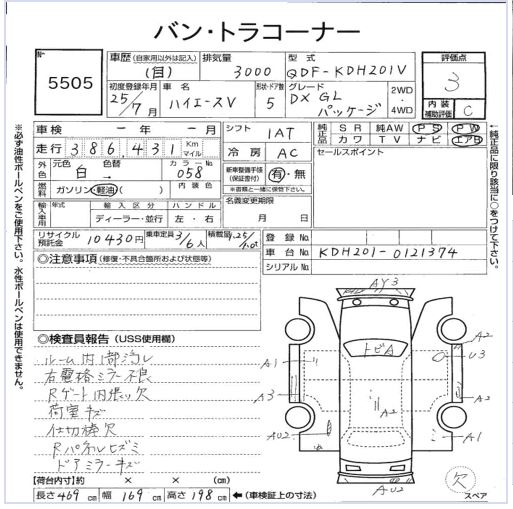 バン・トラコーナー
No 5505
車歴(自家用以外は記入) (自)
排気量 3000
型式 QDF-KDH201V
評価点 3
内装補助評価 C
初度登録年月 25/7月
車名 ハイエースV
形状・ドア数 5
グレード DX GL パッケージ
2WD・4WD
車検 ー年ー月
シフト 1AT
純正品 SR 純AW PS PW
純正品 カワ TV ナビ エアB
走行 386,431 Km マイル
冷房 AC
セールスポイント
外色 元色 白 色替 → カラーNo 058
燃料 ガソリン・軽油( ) 内装色
新車整備手帳(保証書付) 有・無
※書類と一緒に保管下さい。
名義変更期限 月 日
輸入車用 年式 輸入区分 ハンドル
ディーラー・並行 左・右
リサイクル預託金 10430円 乗車定員 3/6人 積載量
登録No
車台No KDH201-0121374
シリアルNo
◎注意事項(修復・不具合箇所および状態等)
◎検査員報告(USS使用欄)
ルーム内1部汚レ
右電格ミラー不良
Rゲート内張り欠
荷室キズ
仕切棒欠
Rパネルヒズミ
ドアミラーキズ
AY3
トビA
A2
U3
A1
A3
A2
A2
AU2
A1
AU2
欠
スペア
【荷台内寸】約 × × (cm)
長さ 469cm 幅 169cm 高さ 198cm ←(車検証上の寸法)
※必ず油性ボールペンをご使用下さい。水性ボールペンは使用できません。
←純正品に限り該当に○をつけて下さい。